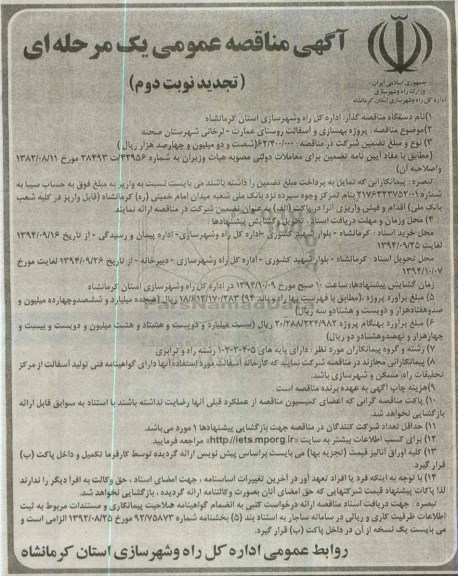 آگهی مناقصه عمومی یک مرحله ای
(تجدید نوبت دوم)
جمهوری اسلامی ایران
وزارت راه و شهرسازی
اداره کل راه و شهرسازی استان کرمانشاه
۱)نام دستگاه مناقصه گذار: اداره کل راه وشهرسازی استان کرمانشاه
۲)موضوع مناقصه : پروژه بهسازی و اسفالت روستای عمارت - لرخانی شهرستان صحنه
۳) نوع و مبلغ تضمین شرکت در مناقصه : ۶۲/۴۰۰/۰۰۰(شصت و دو میلیون و چهارصد هزار ریال)
(مطابق با مفاد آیین نامه تضمین برای معاملات دولتی مصوبه هیات وزیران به شماره ۴۴۹۵۶ت ۲۸۴۹۳ مورخ ۱۳۸۲/۰۸/۱۱
واصلاحیه آن)
تبصره: پیمانکارانی که تمایل به پرداخت مبلغ تضمین را داشته باشند می بایست نسبت به واریز به مبلغ فوق به حساب سیبا به
شماره ۲۱۷۶۴۳۲۳۷۵۲۰۰۱ بنام تمرکز وجوه سپرده نزد بانک ملی شعبه میدان امام خمینی (ره) کرمانشاه (قابل واریز در کلیه شعب
بانک ملی) اقدام و فیش واریزی آنرا در پاکت (الف) به عنوان تضمین شرکت در مناقصه ارائه نمایند.
۴) محل وزمان و مهلت دریافت اسناد ، تحویل وگشایش پیشنهادها :
محل خرید اسناد : کرمانشاه - بلوار شهید کشوری -اداره کل راه وشهرسازی- اداره پیمان و رسیدگی - از تاریخ ۱۳۹۴/۰۹/۱۶
لغایت ۱۳۹۴/۰۹/۲۵
محل تحویل اسناد : کرمانشاه - بلوار شهید کشوری - اداره کل راه وشهرسازی - دبیرخانه - از تاریخ ۱۳۹۴/۰۹/۲۶ لغایت مورخ
۱۳۹۴/۱۰/۰۷
زمان گشایش پیشنهادها: ساعت ۱۰ صبح مورخ ۱۳۹۴/۱۰/۰۹ در اداره کل راه وشهرسازی استان کرمانشاه
۵) مبلغ برآورد پروژه ،(مطابق با فهرست بها راه و باند ۹۴) ۱۸/۶۱۲/۱۷۰/۲۸۳ ریال (هیجده میلیارد و ششصدوچهارده میلیون و
صدوهفتادهزار و دویست و هشتادو سه ریال)
۶) مبلغ برآورد بهنگام پروژه ۲۰/۲۸۸/۲۲۴/۹۸۲ ریال (بیست میلیارد و دویست و هشتاد و هشت میلیون و دویست و بیست و
چهارهزار و نهصدوهشتادو دو ریال)
۷) رشته و گروه پیمانکاران مورد نظر : دارای پایه های ۵-۴-۳-۲-۱ رشته راه و ترابری
۸) پیمانکارانی مجازند در مناقصه شرکت نمایند که کارخانه آسفالت مورد استفاده آنها دارای گواهینامه فنی تولید آسفالت از مرکز
تحقیقات راه، مسکن و شهرسازی باشد.
۹)هزینه چاپ آگهی به عهده برنده مناقصه است .
۱۰) پاکت مناقصه گرانی که اعضای کمیسیون مناقصه از عملکرد قبلی آنها رضایت نداشته باشند با استناد به سوابق قابل ارائه
بازگشایی نخواهد شد.
۱۱) حداقل تعداد شرکت کنندگان در مناقصه جهت بازگشایی پیشنهادها ۱ مورد می باشد.
۱۲) برای کسب اطلاعات بیشتر به سایت «http://iets.mporg.ir» مراجعه فرمایید.
۱۳) کلیه اوراق آنالیز قیمت (تجزیه بها) می بایست براساس پیش نویس ارائه گردیده توسط کارفرما تکمیل و داخل پاکت (ب)
قرار گیرد.
۱۴) با توجه به اینکه فرد یا افراد تعهد آور در آخرین تغییرات اساسنامه ، جهت امضای اسناد ، حق وکالت به افرا دیگر را ندارند
لذا پاکات پیشنهاد قیمت شرکتهایی که حق امضای آنان بصورت وکالتنامه ارائه گردیده ، بازگشایی نخواهد شد.
تبصره : جهت دریافت اسناد مناقصه ارائه درخواست کتبی به انضمام گواهینامه صلاحیت پیمانکاری و مستندات مربوط به ثبت
اطلاعات ظرفیت کاری و ریالی در سامانه ساجار به استناد بند (۵) بخشنامه شماره ۹۲/۷۵۸۷۳ مورخ ۱۳۹۲/۰۸/۲۵ الزامی است و
می بایست یک نسخه از آن در داخل پاکت (ب) قرار گیرد.
روابط عمومی اداره کل راه وشهرسازی استان کرمانشاه